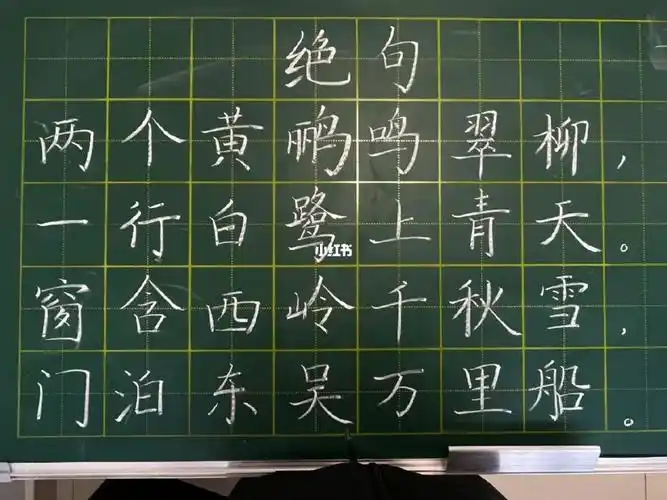 绝句
两个黄鹂鸣翠柳，
一行白鹭上青天。
小红书
窗含西岭千秋雪，
门泊东吴万里船。